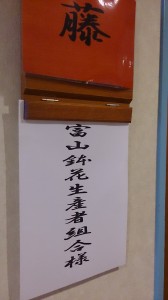 藤
富山鉢花生産者組合様